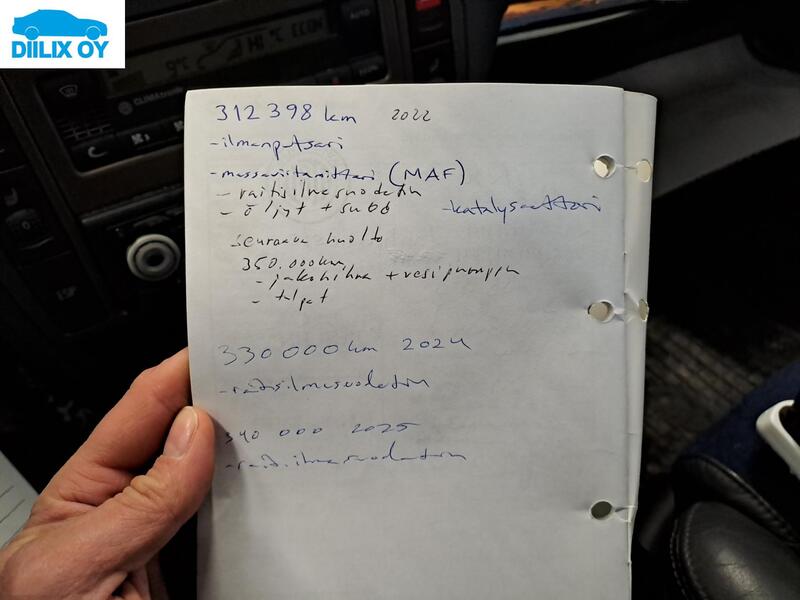 DIILIX OY
AUTO
HI °C ECON
CLIMAtronic
312398 km 2022
-ilmanputsari
-massavirtamittari (MAF)
- raitisilmasuodatin
- öljyt + suod -katalysaattori
seuraava huolto
350.000km
- jakohihna + vesipumppu
- tulpat
330000km 2024
-raitisilmasuodatin
340 000 2025
-rait.ilmasuodatin